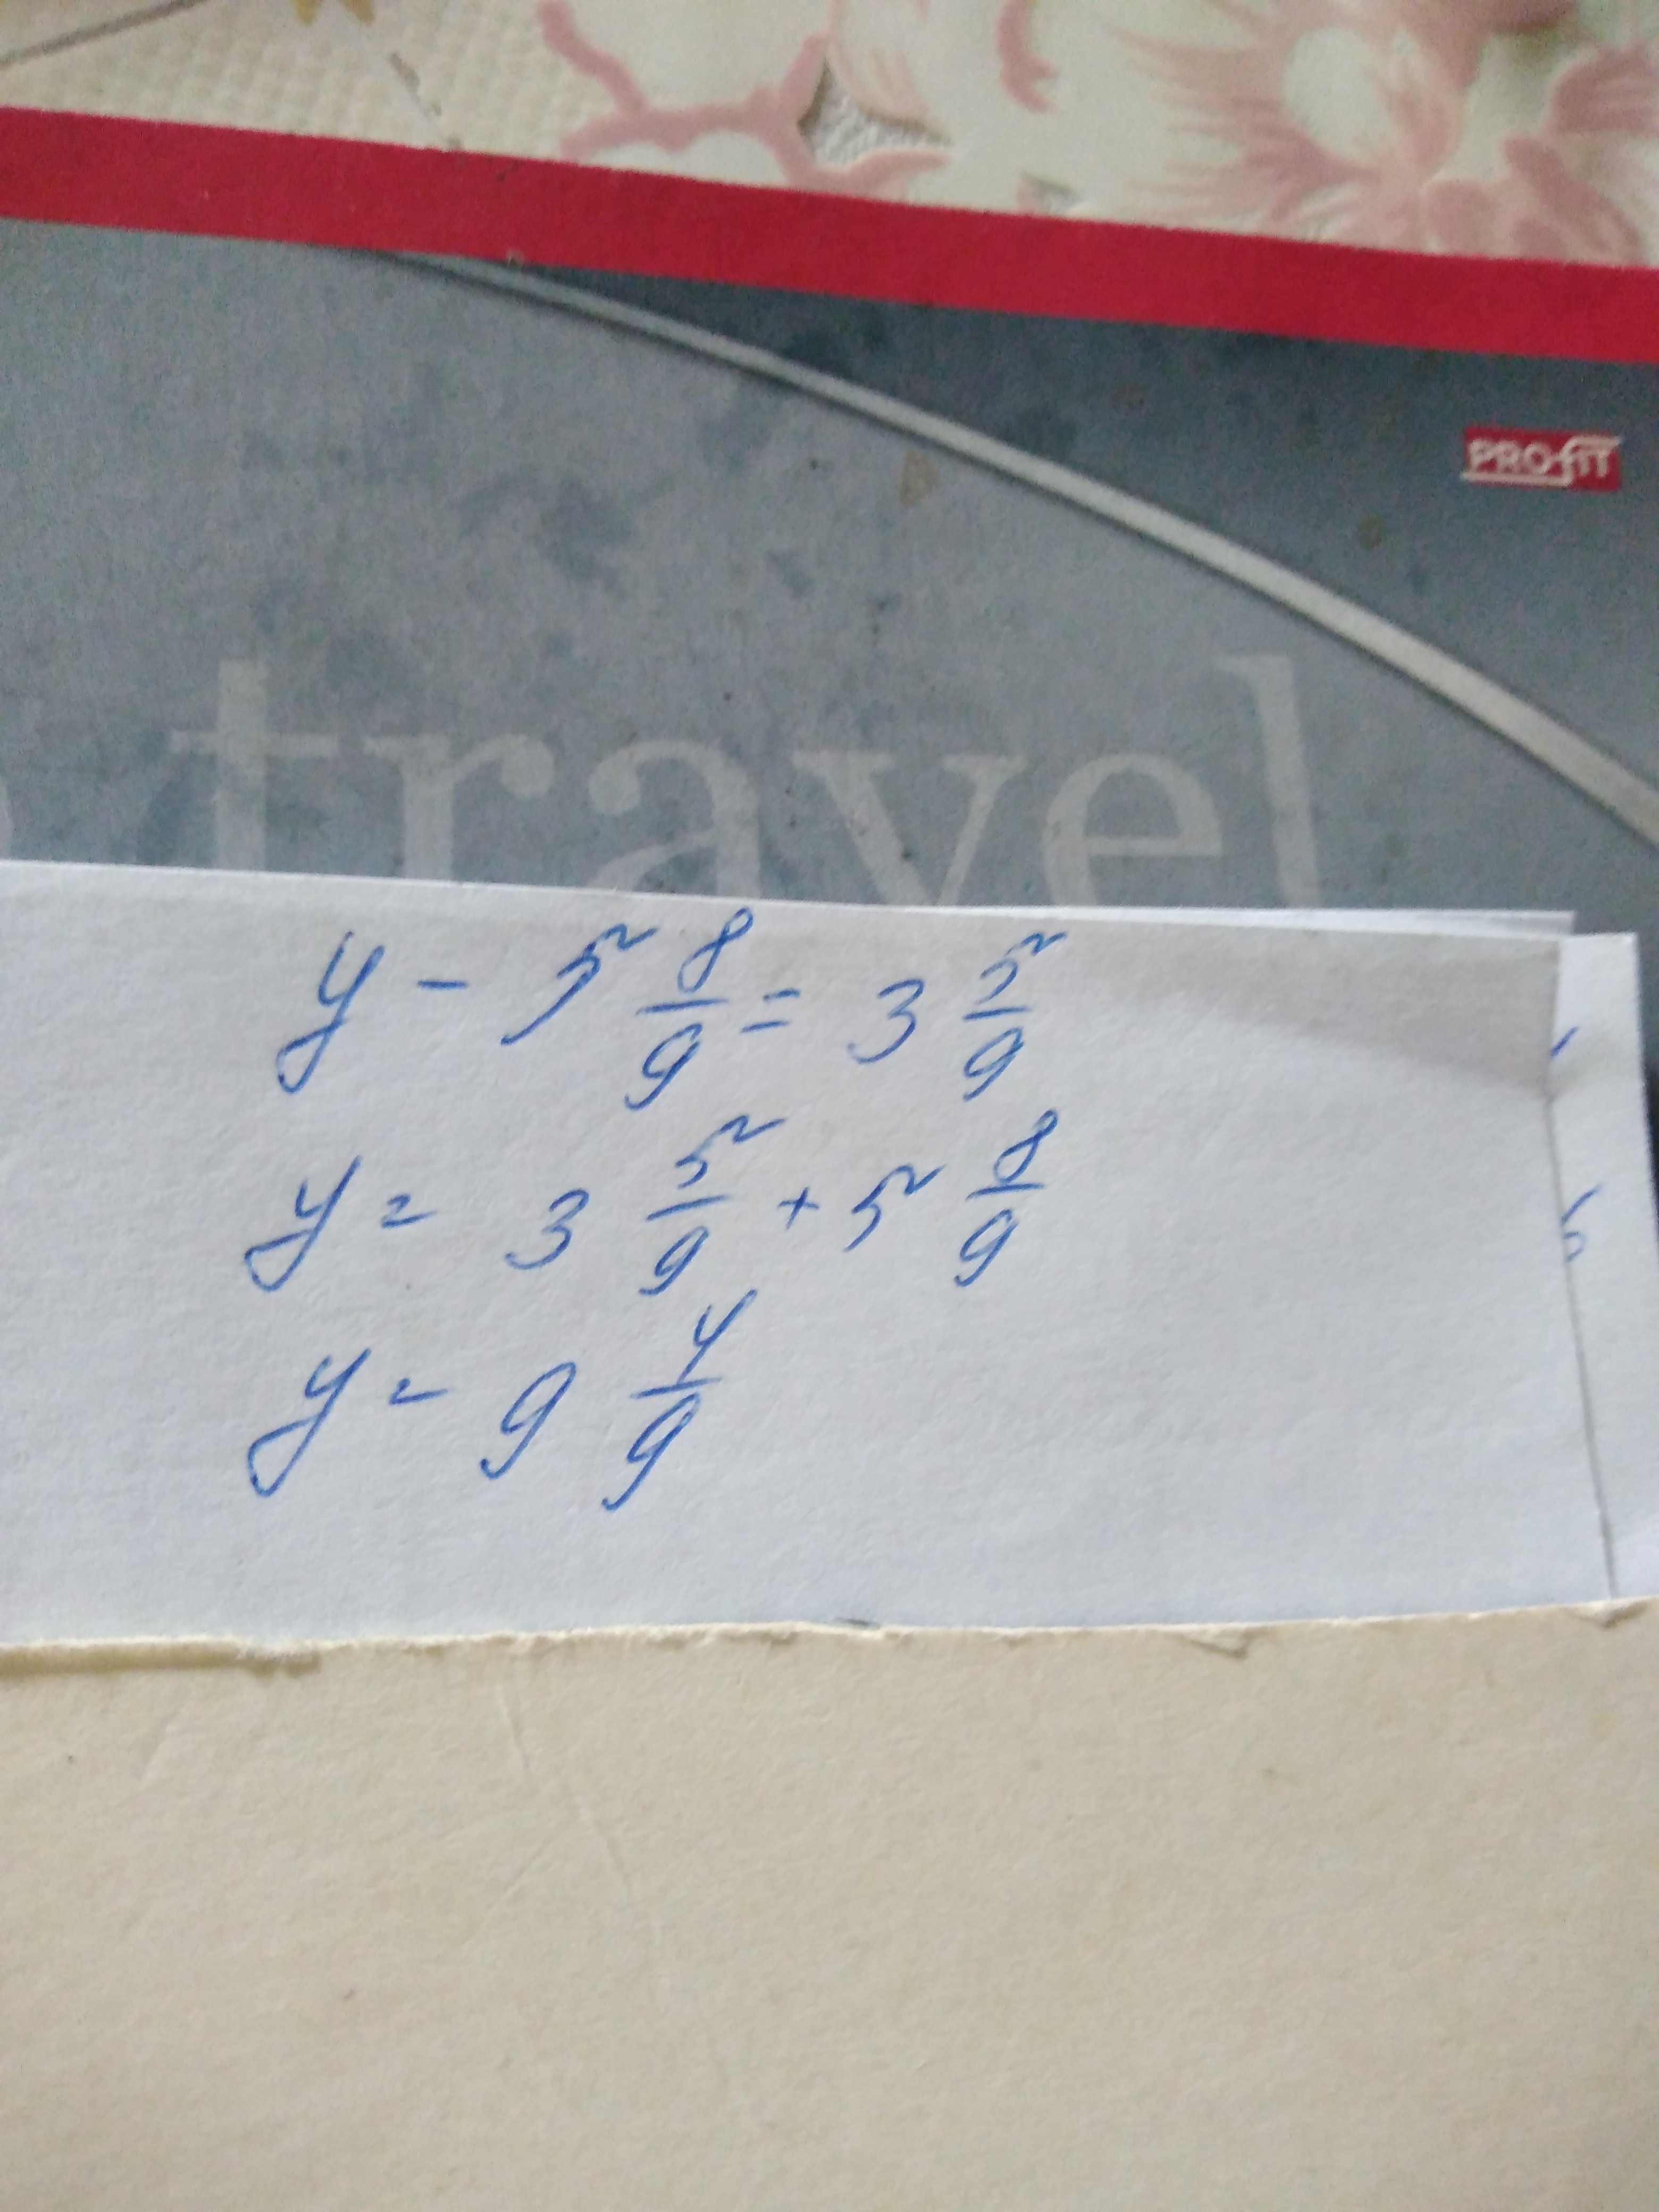 PROfIT
travel
y - 5 8/9 = 3 5/9
y = 3 5/9 + 5 8/9
y = 9 4/9